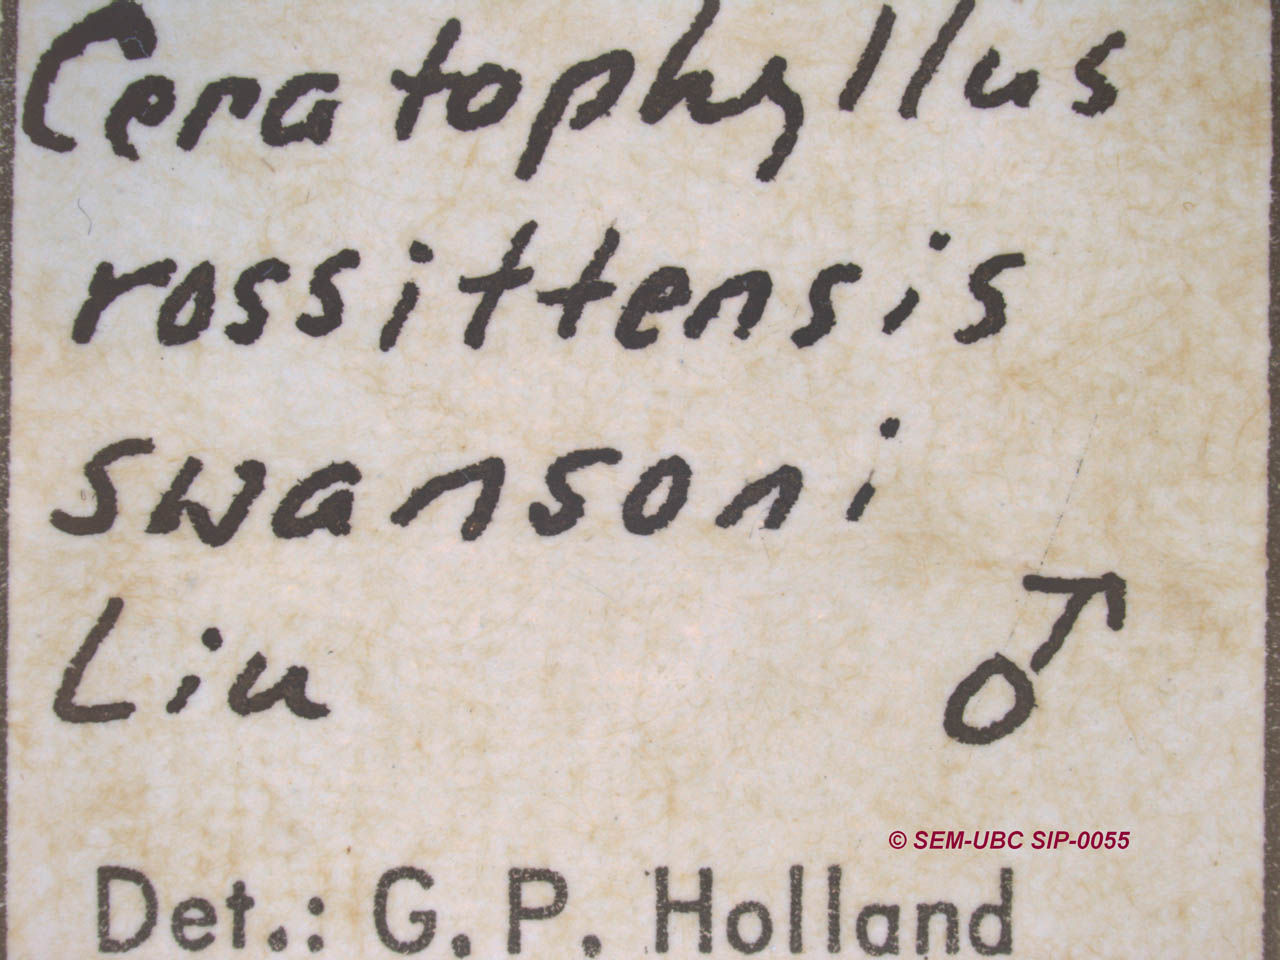 Ceratophyllus
rossittensis
swansoni
Liu ♂
© SEM-UBC SIP-0055
Det.: G. P. Holland